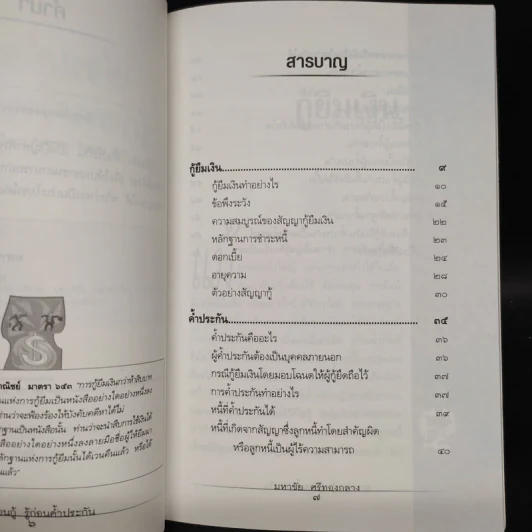 คำนำ
ณิชย์ มาตรา ๖๕๓ "การกู้ยืมเงินกว่าห้าสิบบาท
นแห่งการกู้ยืมเป็นหนังสืออย่างใดอย่างหนึ่งลง
ท่านว่าจะฟ้องร้องให้บังคับคดีหาได้ไม่
ฐานเป็นหนังสือนั้น ท่านว่าจะนำสืบการใช้เงินได้
สืออย่างใดอย่างหนึ่งลงลายมือชื่อผู้ให้ยืมมา
ลักฐานแห่งการกู้ยืมนั้นได้เวนคืนแล้ว หรือได้
นแล้ว"
อนกู้ รู้ก่อนค้ำประกัน
๖
สารบาญ
กู้ยืมเงิน ๙
กู้ยืมเงินทำอย่างไร ๑๐
ข้อพึงระวัง ๑๕
ความสมบูรณ์ของสัญญากู้ยืมเงิน ๒๒
หลักฐานการชำระหนี้ ๒๓
ดอกเบี้ย ๒๔
อายุความ ๒๘
ตัวอย่างสัญญากู้ ๓๐
ค้ำประกัน ๓๕
ค้ำประกันคืออะไร ๓๖
ผู้ค้ำประกันต้องเป็นบุคคลภายนอก ๓๖
กรณีกู้ยืมเงินโดยมอบโฉนดให้ผู้ให้กู้ยึดถือไว้ ๓๗
การค้ำประกันทำอย่างไร ๓๗
หนี้ที่ค้ำประกันได้ ๓๙
หนี้ที่เกิดจากสัญญาซึ่งลูกหนี้ทำโดยสำคัญผิด
หรือลูกหนี้เป็นผู้ไร้ความสามารถ ๔๐
มหาชัย ศรีทองกลาง
๗